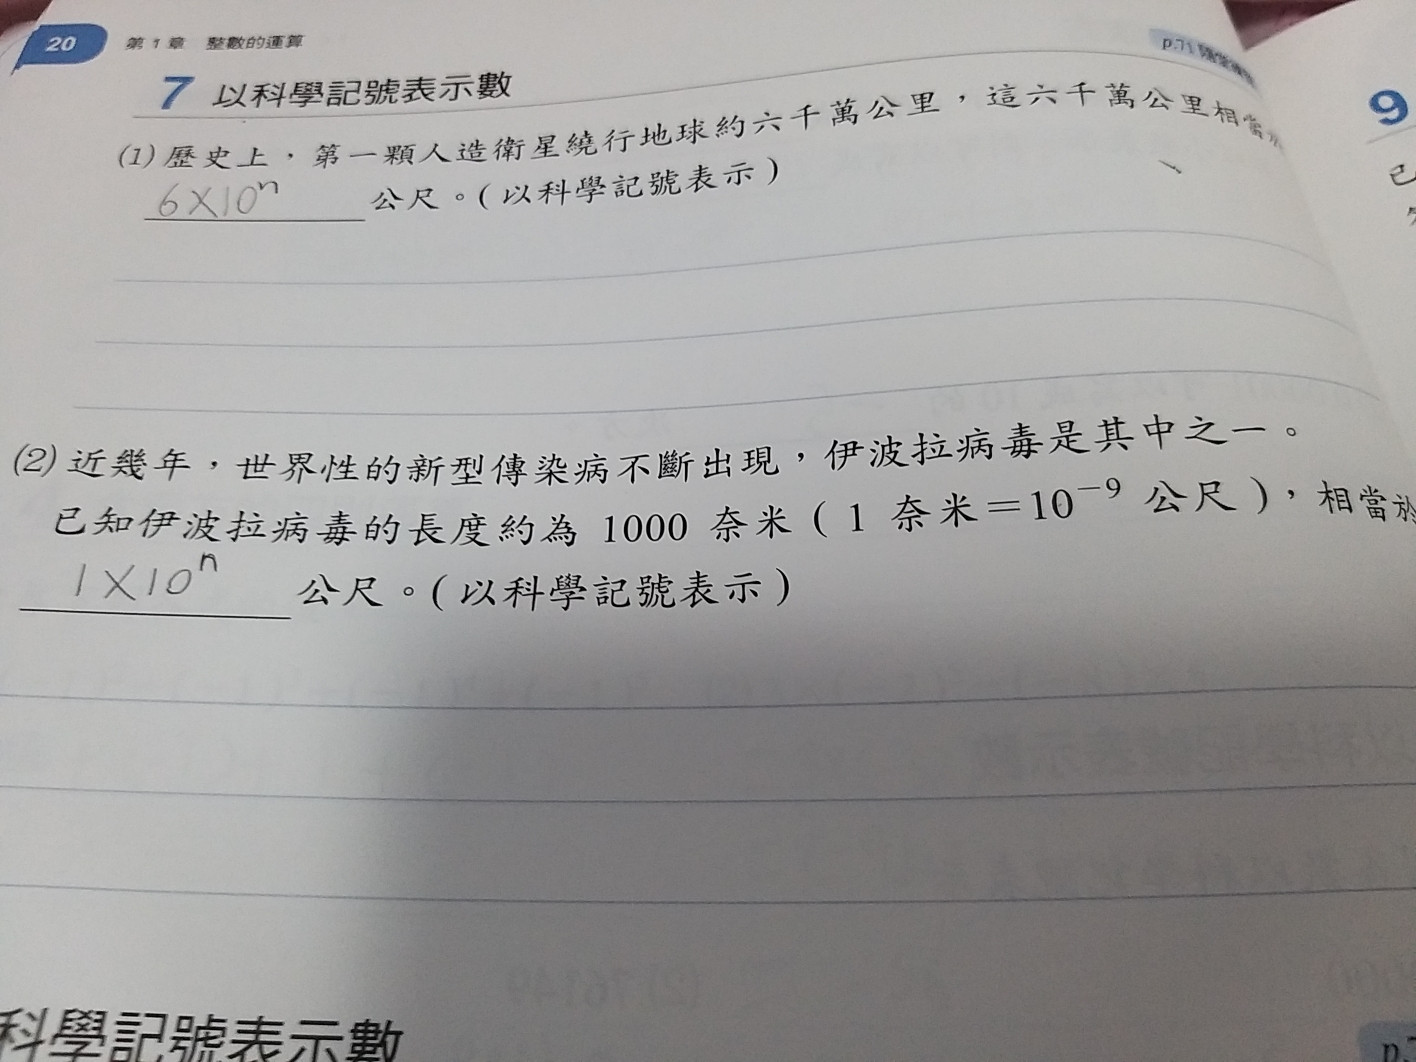 20 第 1 章 整數的運算
p.71
7 以科學記號表示數
(1) 歷史上，第一顆人造衛星繞行地球約六千萬公里，這六千萬公里相當
6×10ⁿ 公尺。(以科學記號表示)
(2) 近幾年，世界性的新型傳染病不斷出現，伊波拉病毒是其中之一。
已知伊波拉病毒的長度約為 1000 奈米 ( 1 奈米＝10⁻⁹ 公尺 )，相當於
1×10ⁿ 公尺。(以科學記號表示)
科學記號表示數
9
已